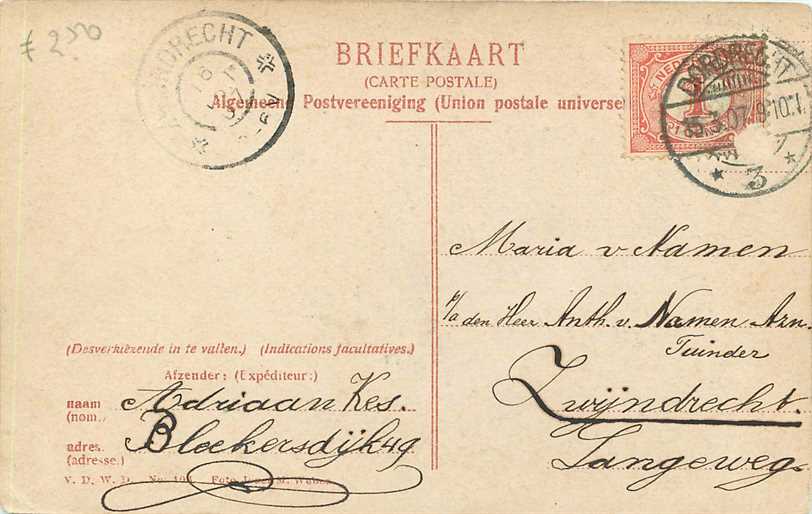 ƒ 2,50
BRIEFKAART
(CARTE POSTALE)
Algemeene Postvereeniging (Union postale universe
DORDRECHT
8-10V
3
1
Maria v Namen
p/a den Heer Anth. v. Namen Azn.
Tuinder
Zwijndrecht.
Langeweg.
(Desverkiezende in te vullen.) (Indications facultatives.)
Afzender: (Expéditeur:)
naam Adriaan Kes.
(nom.)
adres. Bleekersdijk 49
(adresse.)
V. D. W. D. No. 104 Foto